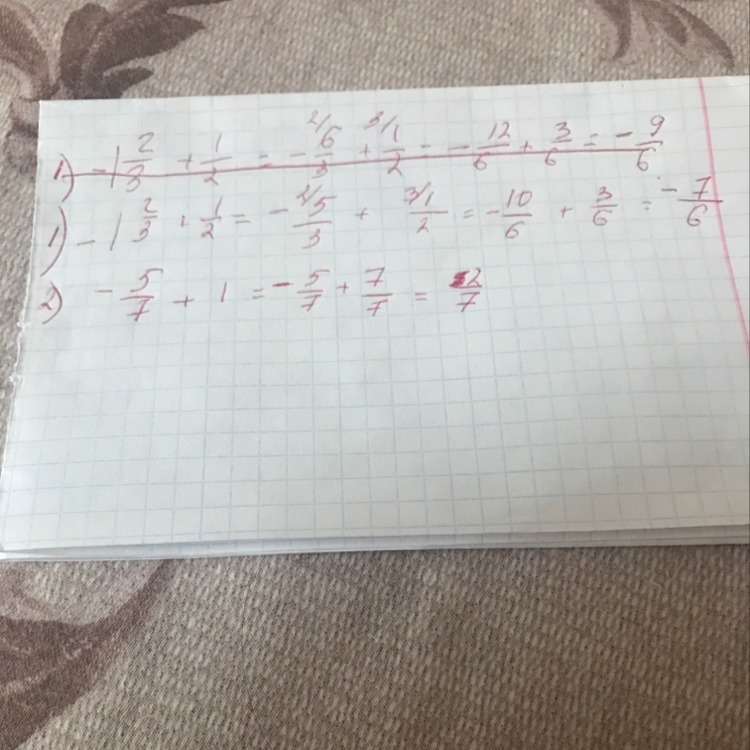 1) -1 2/3 + 1/2 = - 2/ 6/3 + 3/ 1/2 = - 12/6 + 3/6 = - 9/6
1) -1 2/3 + 1/2 = - 2/ 5/3 + 3/ 1/2 = - 10/6 + 3/6 = - 7/6
2) - 5/7 + 1 = - 5/7 + 7/7 = 2/7